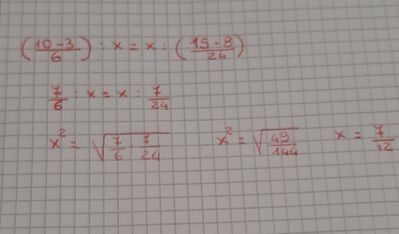 (10-3/6) : x = x : (15-8/24)
7/6 : x = x : 7/24
x² = √7/6 · 7/24 x² = √49/144 x = 7/12